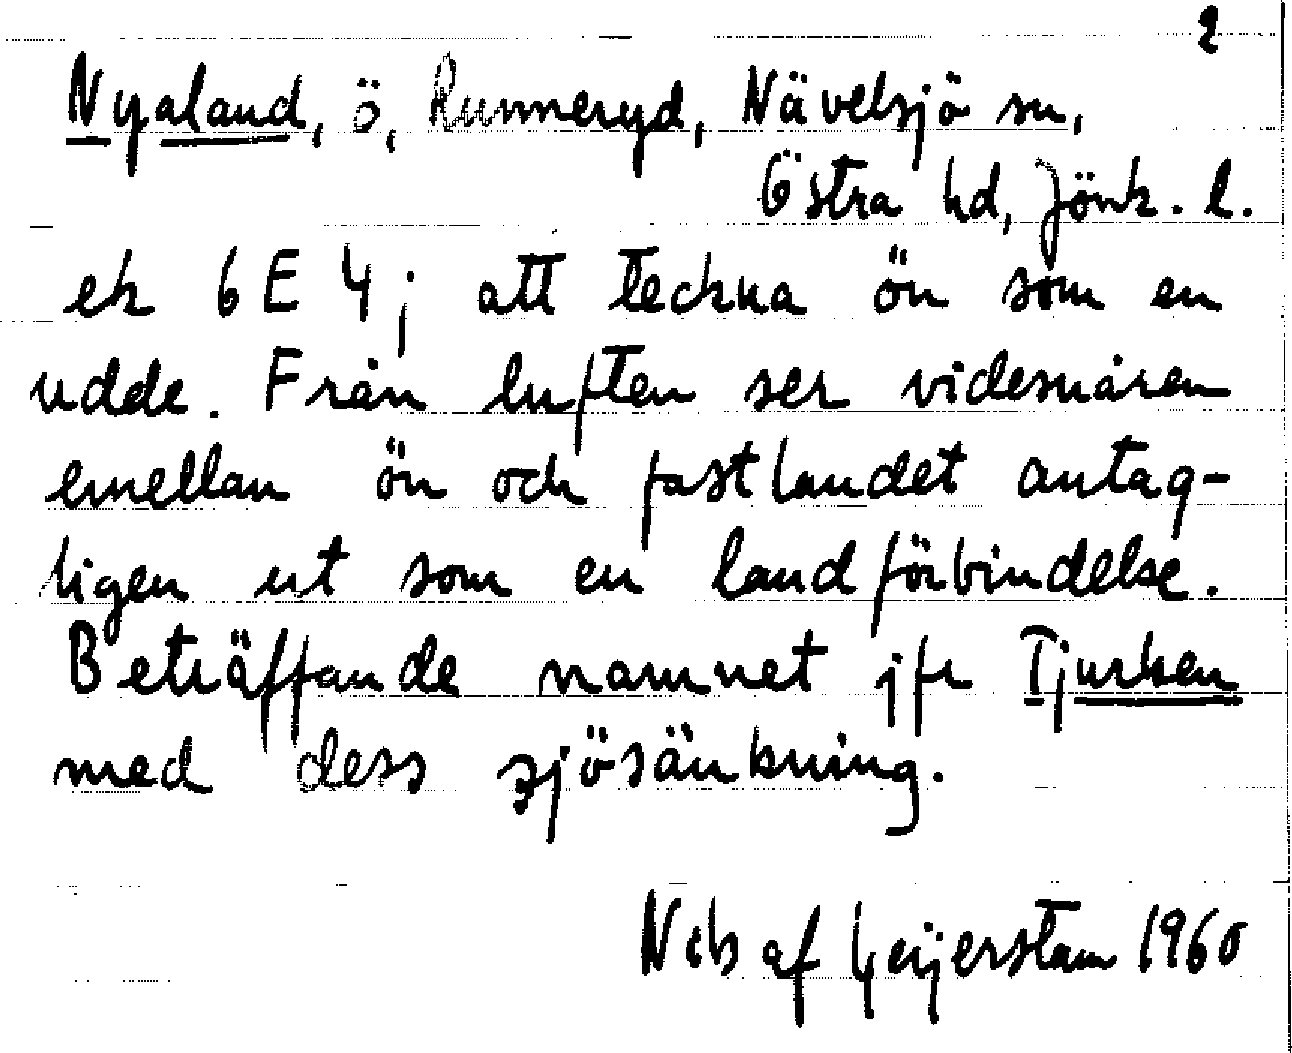 2
Nyaland, ö, Runneryd, Nävelsjö sn,
Östra hd, Jönk. l.
ek 6E4j att teckna ön som en
udde. Från luften ser videsnåren
emellan ön och fastlandet antag-
ligen ut som en landförbindelse.
Beträffande namnet jfr Tjurken
med dess sjösänkning.
Nils af Geijerstam 1960